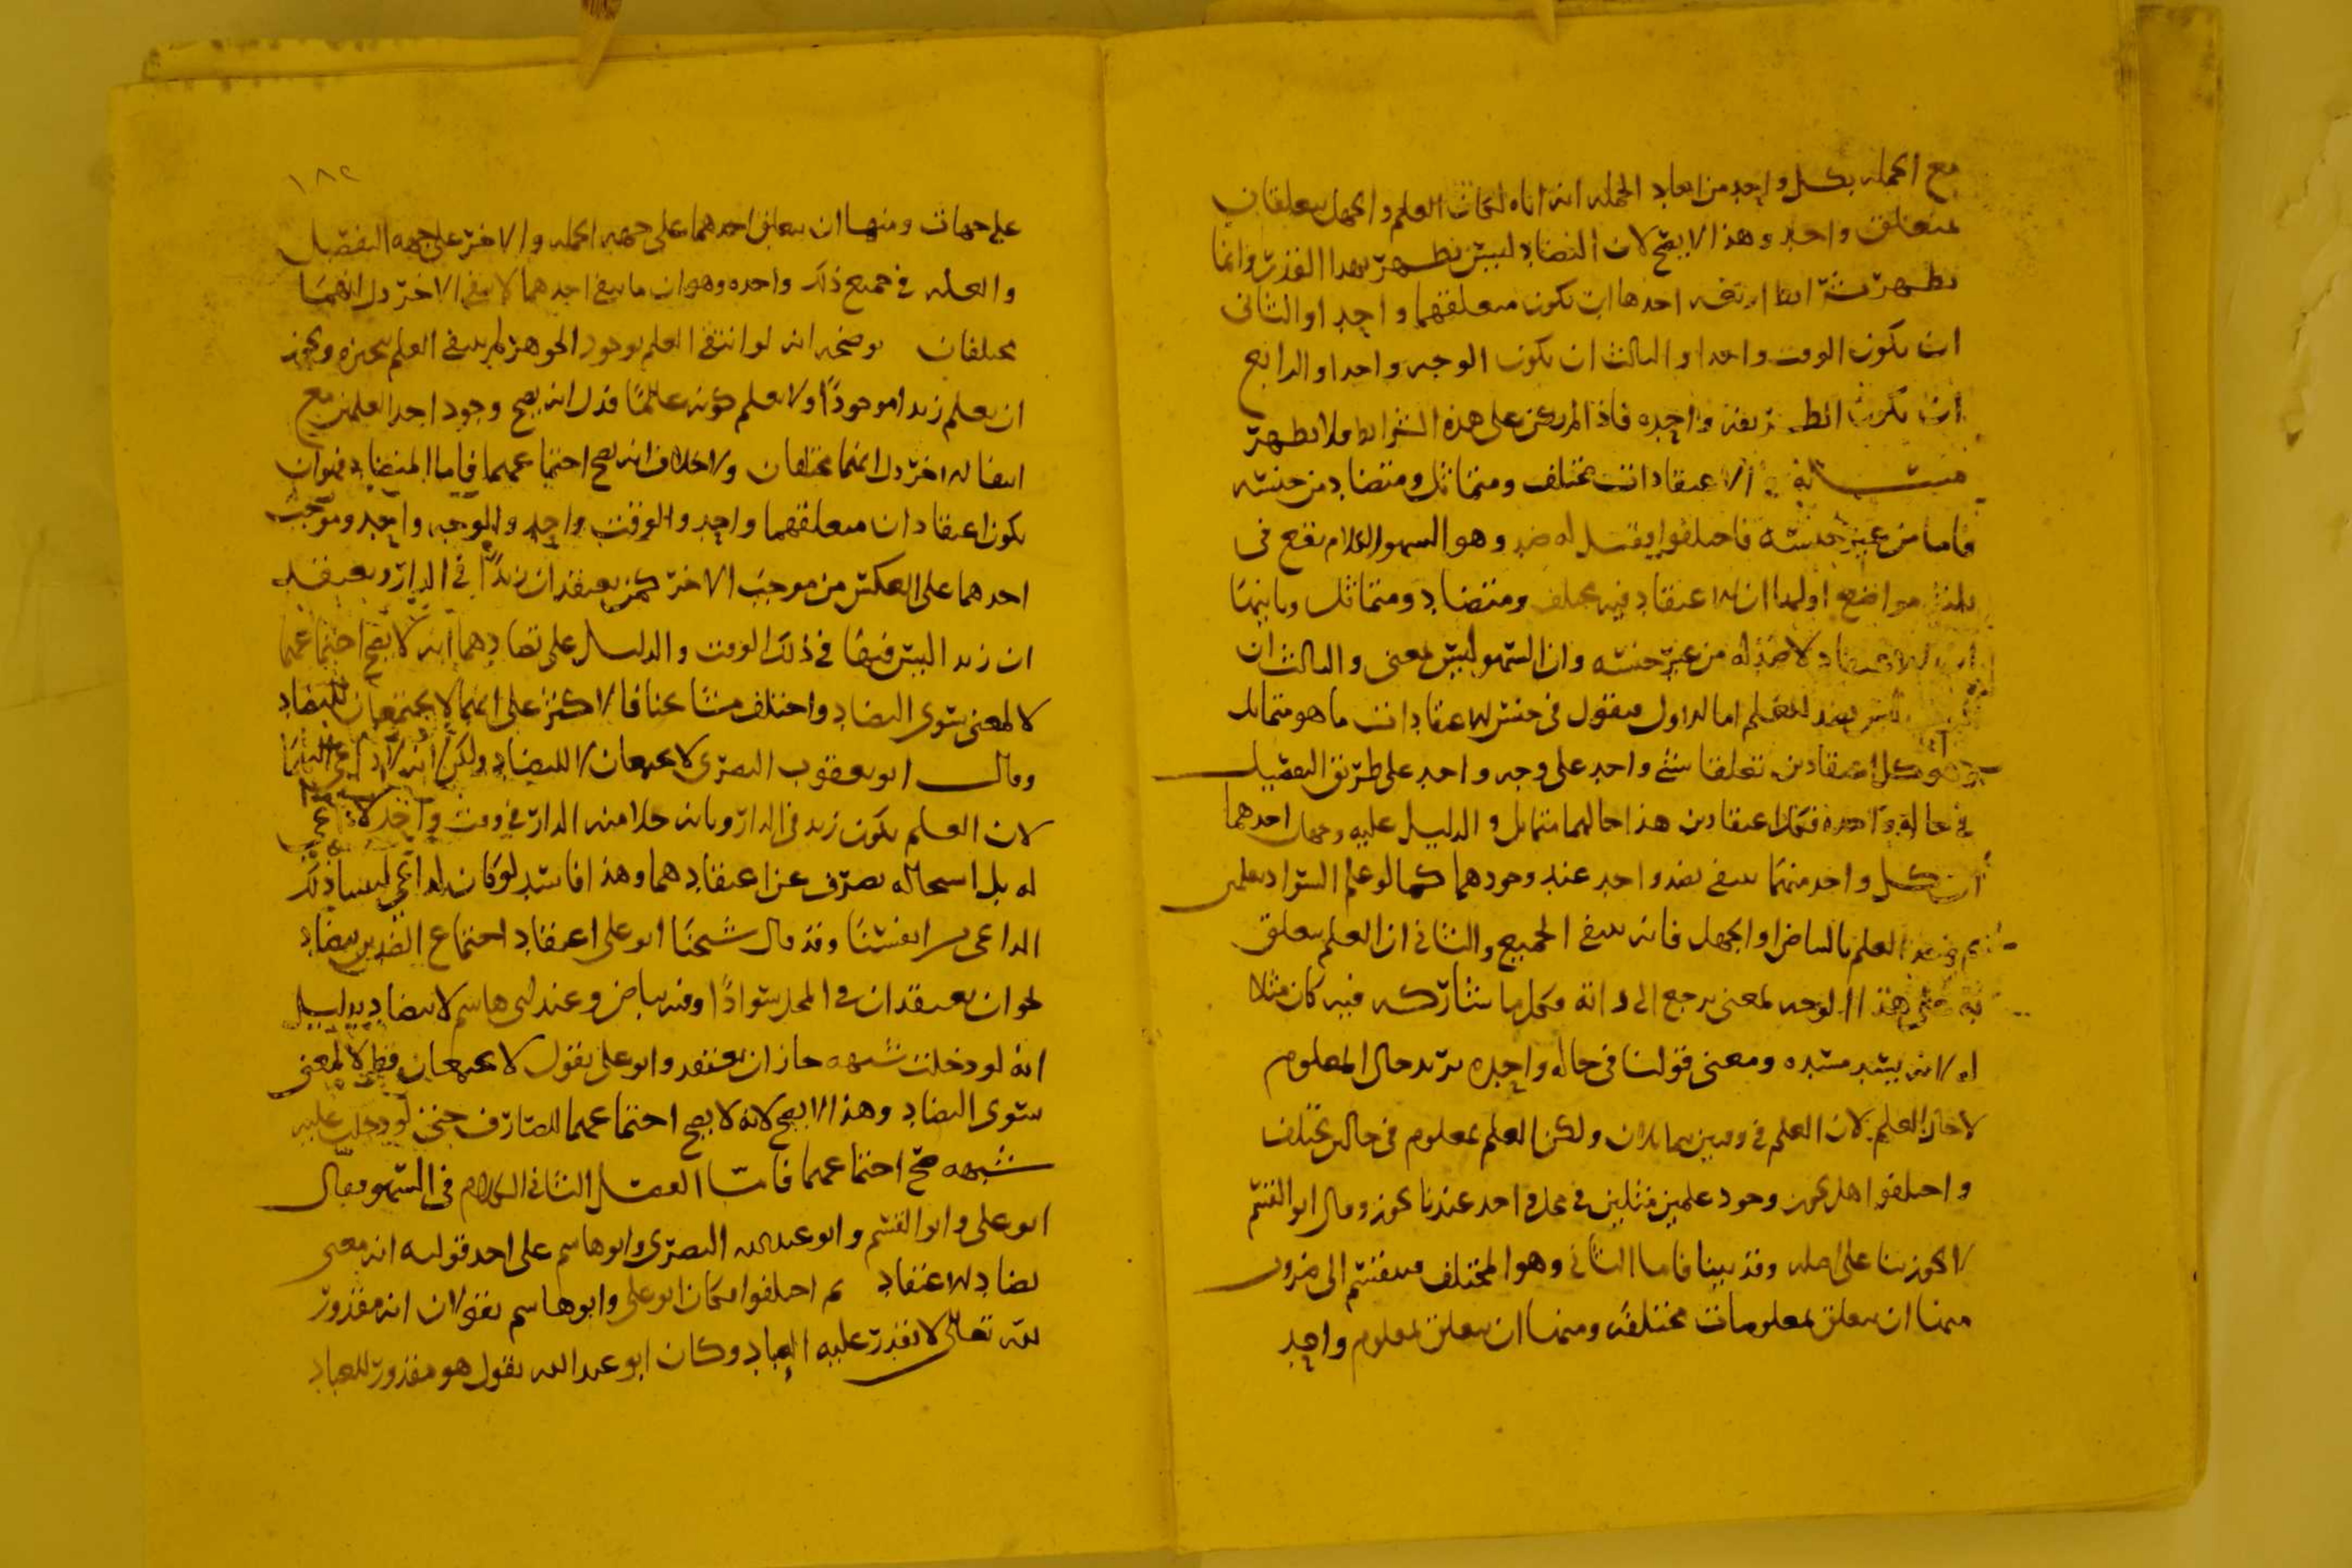 مع الجمله بكل واحد من احاد الجمله انه اياه لكان العلم والجهل يتعلقان
بمتعلق واحد وهذا لا يصح لان التضاد ليس يظهر بهذا القدر وانما
يظهر بشرائط اربعه احدها ان يكون متعلقهما واحدا والثاني
ان يكون الوقت واحدا والثالث ان يكون الوجه واحدا والرابع
ان تكون الطريقه واحده فاذا لم يكن على هذه الشرائط فلا يظهر
مسأله الاعتقادات مختلف ومتماثل ومتضاد من جنسه
فاما من غير جنسه فاختلفوا فقيل له ضد وهو السهو الكلام يقع في
ثلثه مواضع اولها ان الاعتقاد فيه مختلف ومتضاد ومتماثل وثانيها
ان الاعتقاد لا ضد له من غير جنسه وان السهو ليس بمعنى والثالث ان
ليس بضد للعلم اما الاول فنقول في جنس الاعتقادات ما هو متماثل
وهو كل اعتقادين تعلقا بشي واحد على وجه واحد على طريق التفصيل
في حاله واحده فكل اعتقادين هذا حالهما متماثل والدليل عليه وجهان احدهما
ان كل واحد منهما ينتفي بضد واحد عند وجودهما كما لو علم السواد بعلمين
ثم العلم بالبياض او الجهل فانه ينتفي الجميع والثاني ان العلم يتعلق
به على هذا الوجه لمعنى يرجع الى ذاته فكل ما شاركه فيه كان مثلا
له لانه يسد مسده ومعنى قولنا في حاله واحده نريد حال المعلوم
لا حال العلم لان العلم في وقتين متماثلان ولكن العلم بمعلوم في حالين مختلف
واختلفوا هل يجوز وجود علمين مثلين في محل واحد عندنا يجوز وقال ابو القسم
لا يجوز بنا على اصله وقد بينا فاما الثاني وهو المختلف فينقسم الى ضروب
منها ان يتعلق بمعلومات مختلفه ومنها ان يتعلق بمعلوم واحد
١٨٢
على جهات ومنها ان يتعلق احدهما على جهه الجمله والاخر على جهه التفصيل
والعله في جميع ذلك واحده وهو ان ما ينفي احدهما لا ينفي الاخر دل انهما
مختلفان يوضحه انه لو انتفى العلم بوجود الجوهر لم ينتف العلم بتحيزه ويجوز
ان يعلم زيدا موجودا ولا يعلم كونه عالما فدل انه يصح وجود احد العلمين مع
انتفا الاخر دل انهما مختلفان ولا خلاف انه يصح اجتماعهما فاما المتضاد فهو ان
يكون اعتقادان متعلقهما واحد والوقت واحد والوجه واحد وموجب
احدهما على العكس من موجب الاخر كمن يعتقد ان زيدا في الدار ويعتقد
ان زيدا ليس فيها في ذلك الوقت والدليل على تضادهما انه لا يصح اجتماعهما
لا لمعنى سوى التضاد واختلف مشائخنا فالاكثر على انهما لا يجتمعان للتضاد
وقال ابو يعقوب البصري لا يجتمعان لا للتضاد ولكن لانه لا داعي اليهما
لان العلم بكون زيد في الدار وبانه خلا منه الدار في وقت واحد لا
له بل استحاله يصرف عن اعتقادهما وهذا فاسد لو كان للداعي ذلك
الداعي انفسنا وقد قال شيخنا ابو علي اعتقاد اجتماع الضدين يتضاد
نحو ان يعتقد ان في المحل سوادا وفيه بياض وعند ابي هاشم لا يتضاد بدليل
انه لو دخلت شبهه جاز ان يعتقد وابو علي يقول لا يجتمعان قط لا لمعنى
سوى التضاد وهذا لا يصح لانه لا يصح اجتماعهما لصارف حتى لو دخلت عليه
شبهه صح اجتماعهما فاما الفصل الثاني الكلام في السهو فقال
ابو علي وابو القسم وابو عبد الله البصري وابو هاشم على احد قوليه انه معنى
يضاد الاعتقاد ثم اختلفوا فكان ابو علي وابو هاشم يقولان انه مقدور
لله تعالى لا يقدر عليه العباد وكان ابو عبد الله يقول هو مقدور للعباد